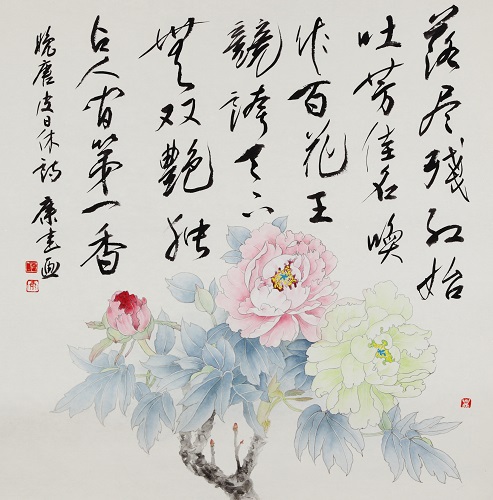 落尽残红始
吐芳佳名唤
作百花王
竞誇天下
无双艳独
占人间第一香
晚唐皮日休诗 康走画